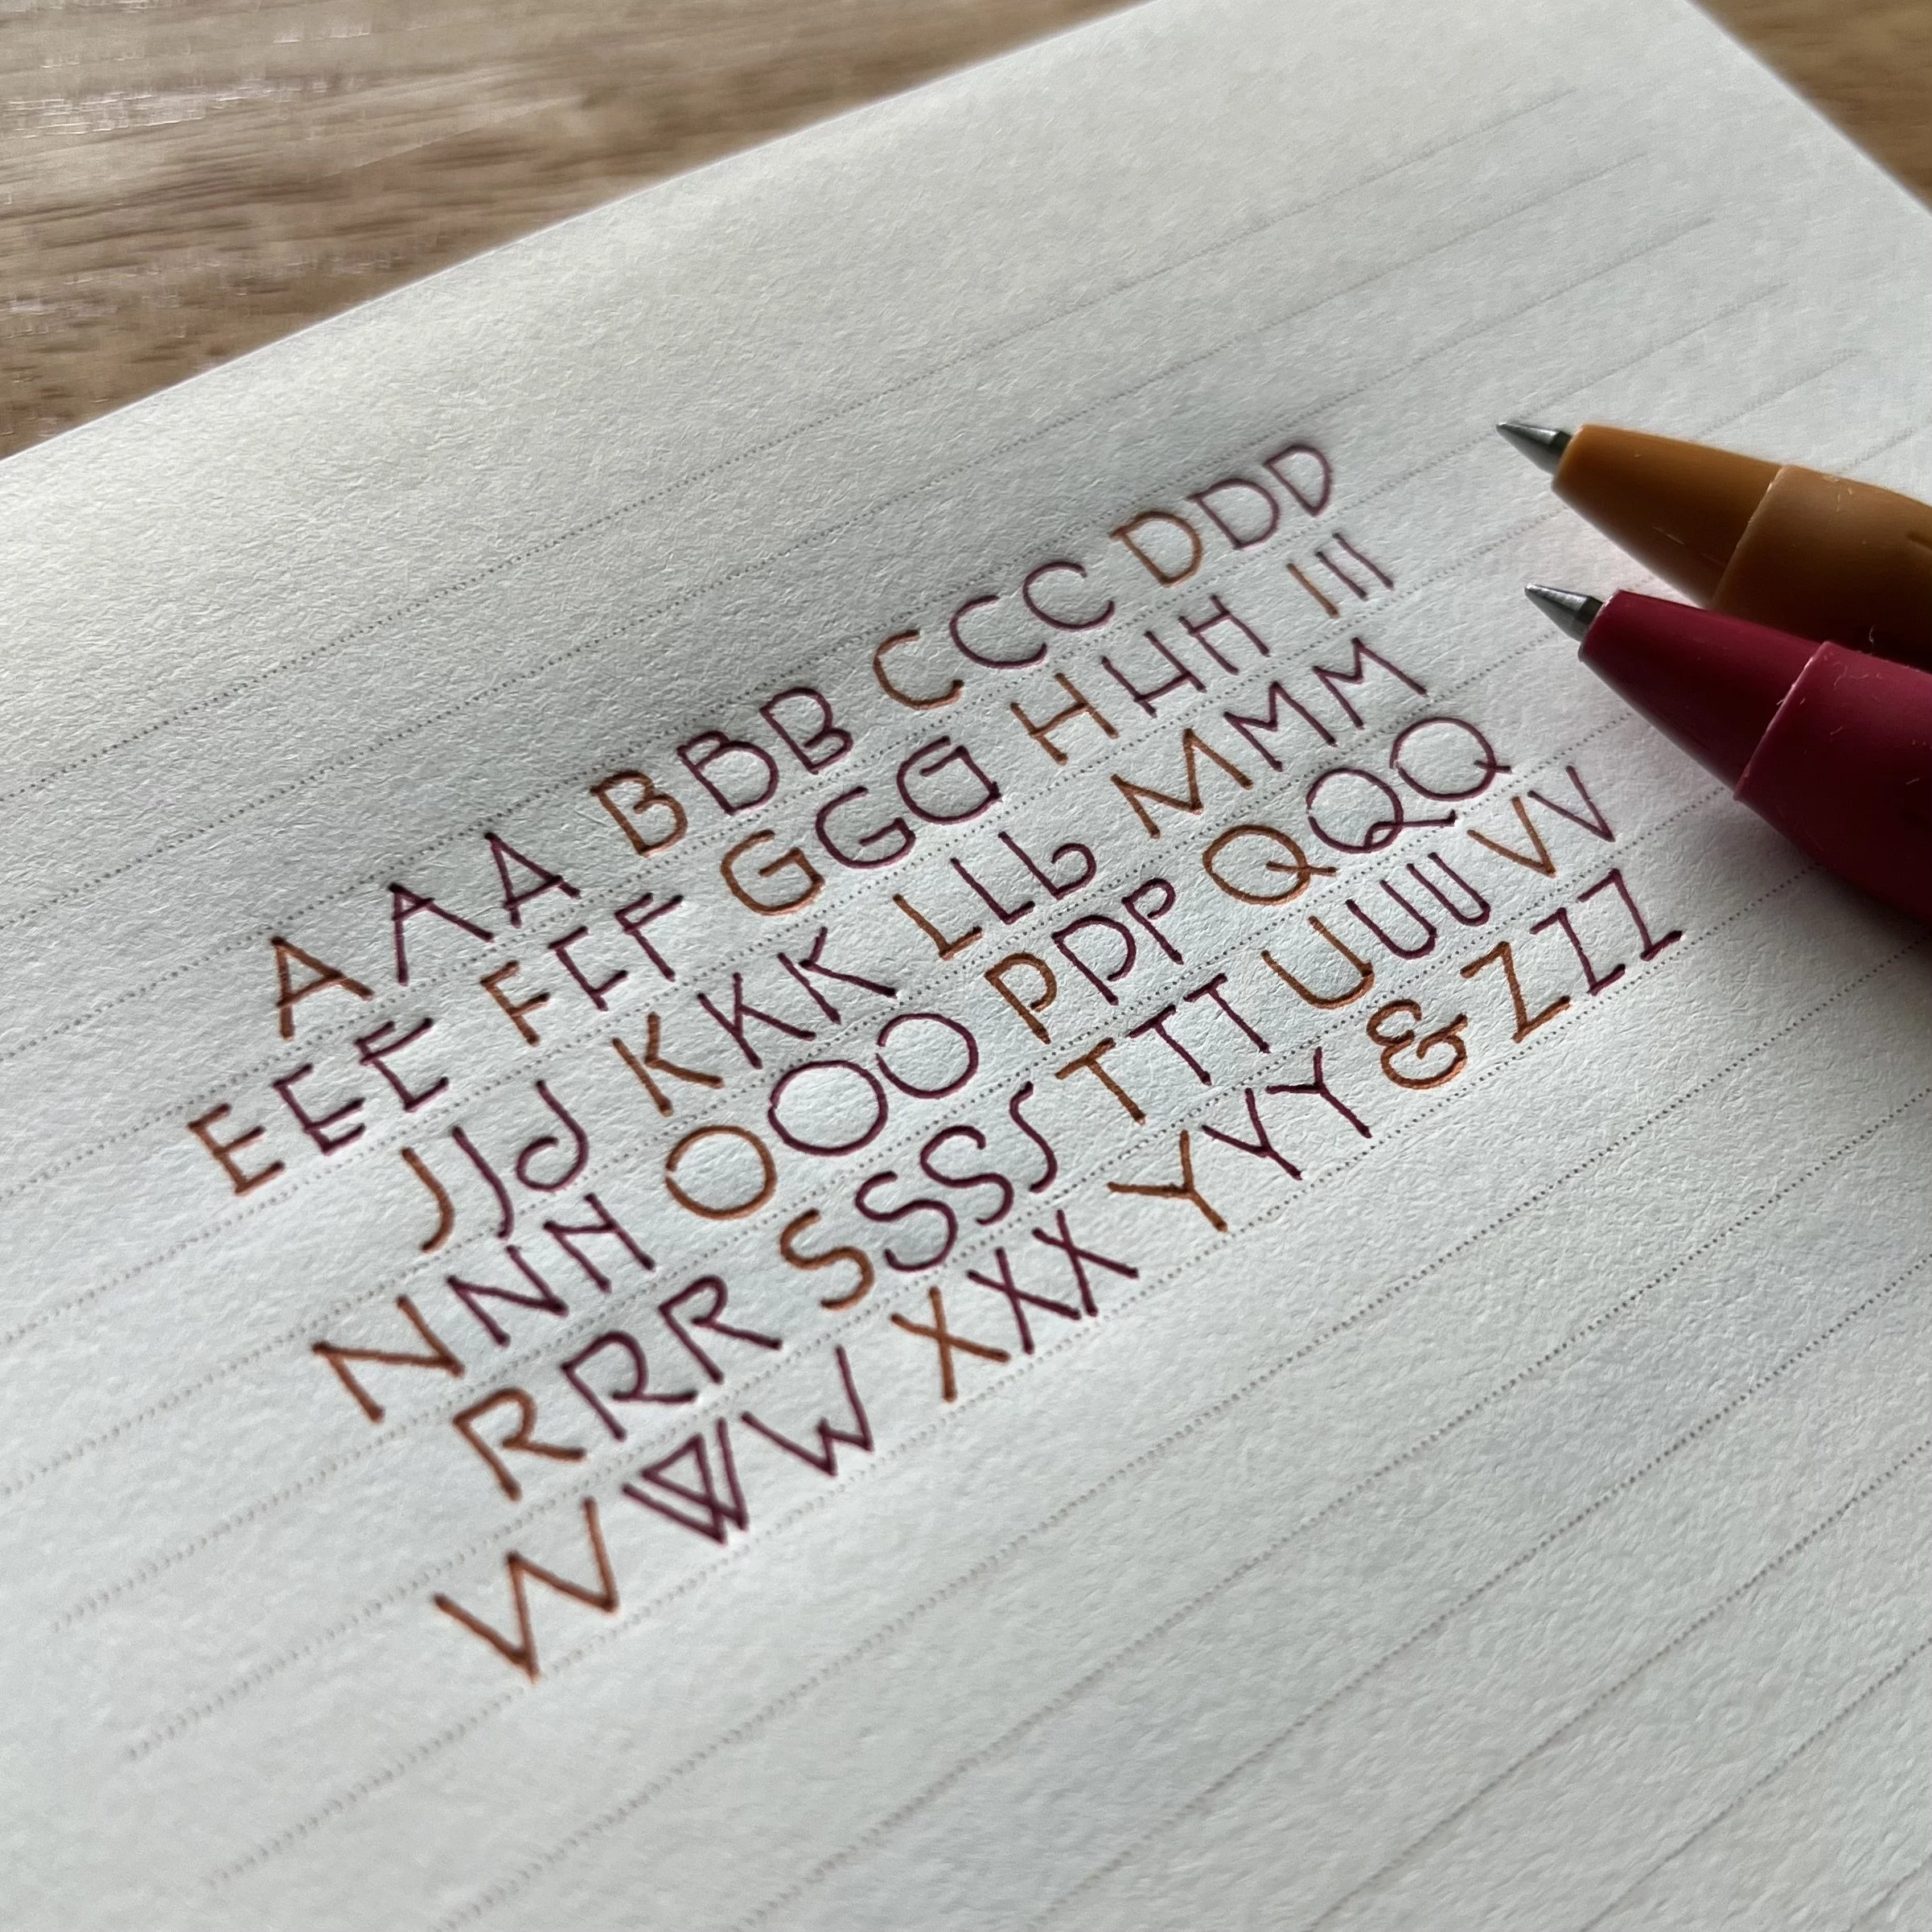 AAA BBB CCC DDD
EEE FFF GGG HHH III
JJJ KKK LLL MMM
NNN OOO PPP QQQ
RRR SSSS TTT UUU VV
WWW XXX YYY & ZZZ